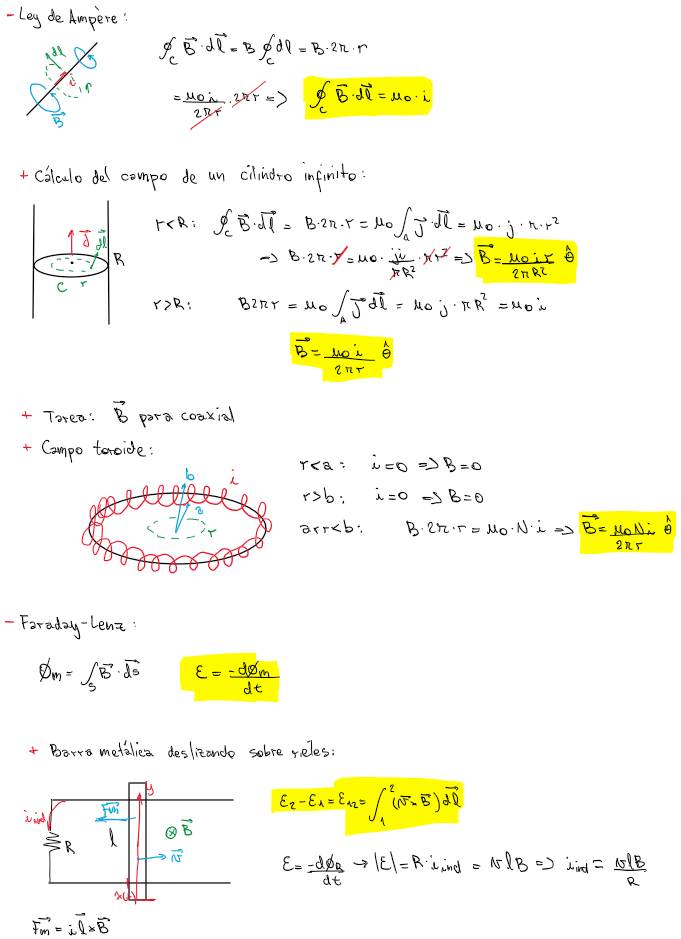 - Ley de Ampère:
dl i r B
∮_C B⃗·dl⃗ = B ∮_C dl = B·2π·r
= μ₀i/2πr · 2πr => ∮_C B⃗·dl⃗ = μ₀·i
+ Cálculo del campo de un cilindro infinito:
J⃗ dl⃗ R C r
r<R: ∮_C B⃗·dl⃗ = B·2π·r = μ₀ ∫_A J⃗·dl⃗ = μ₀·j·π·r²
=> B·2π·r = μ₀· ji/πR² ·πr² => B⃗ = μ₀ir/2πR² θ̂
r>R: B2πr = μ₀ ∫_A J⃗ dl⃗ = μ₀j·πR² = μ₀i
B⃗ = μ₀i/2πr θ̂
+ Tarea: B⃗ para coaxial
+ Campo toroide:
b i a r
r<a: i=0 => B=0
r>b: i=0 => B=0
a<r<b: B·2π·r = μ₀·N·i => B⃗ = μ₀Ni/2πr θ̂
- Faraday-Lenz:
Øm = ∫_S B⃗·ds⃗ ε = -dØm/dt
+ Barra metálica deslizando sobre reles:
i ind R Fm⃗ l y ⊗B⃗ v⃗ x(t)
ε₂-ε₁ = ε₁₂ = ∫₁² (v⃗×B⃗)dl⃗
ε = -dØB/dt → |ε| = R·i ind = vlB => i ind = vlB/R
Fm⃗ = i l⃗×B⃗